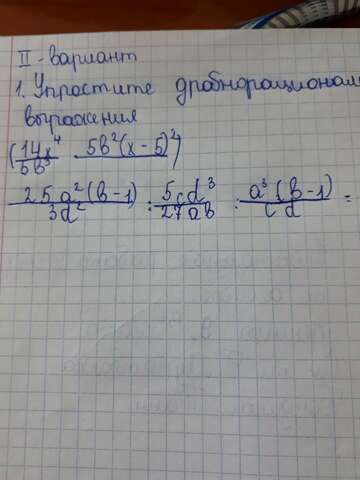 II - вариант
1. Упростите дробнорационал
выражения
(14x⁴/5b³ · 5b²(x-5)²)
25a²(b-1)/3d² : 5cd³/27ab : a³(b-1)/cd =